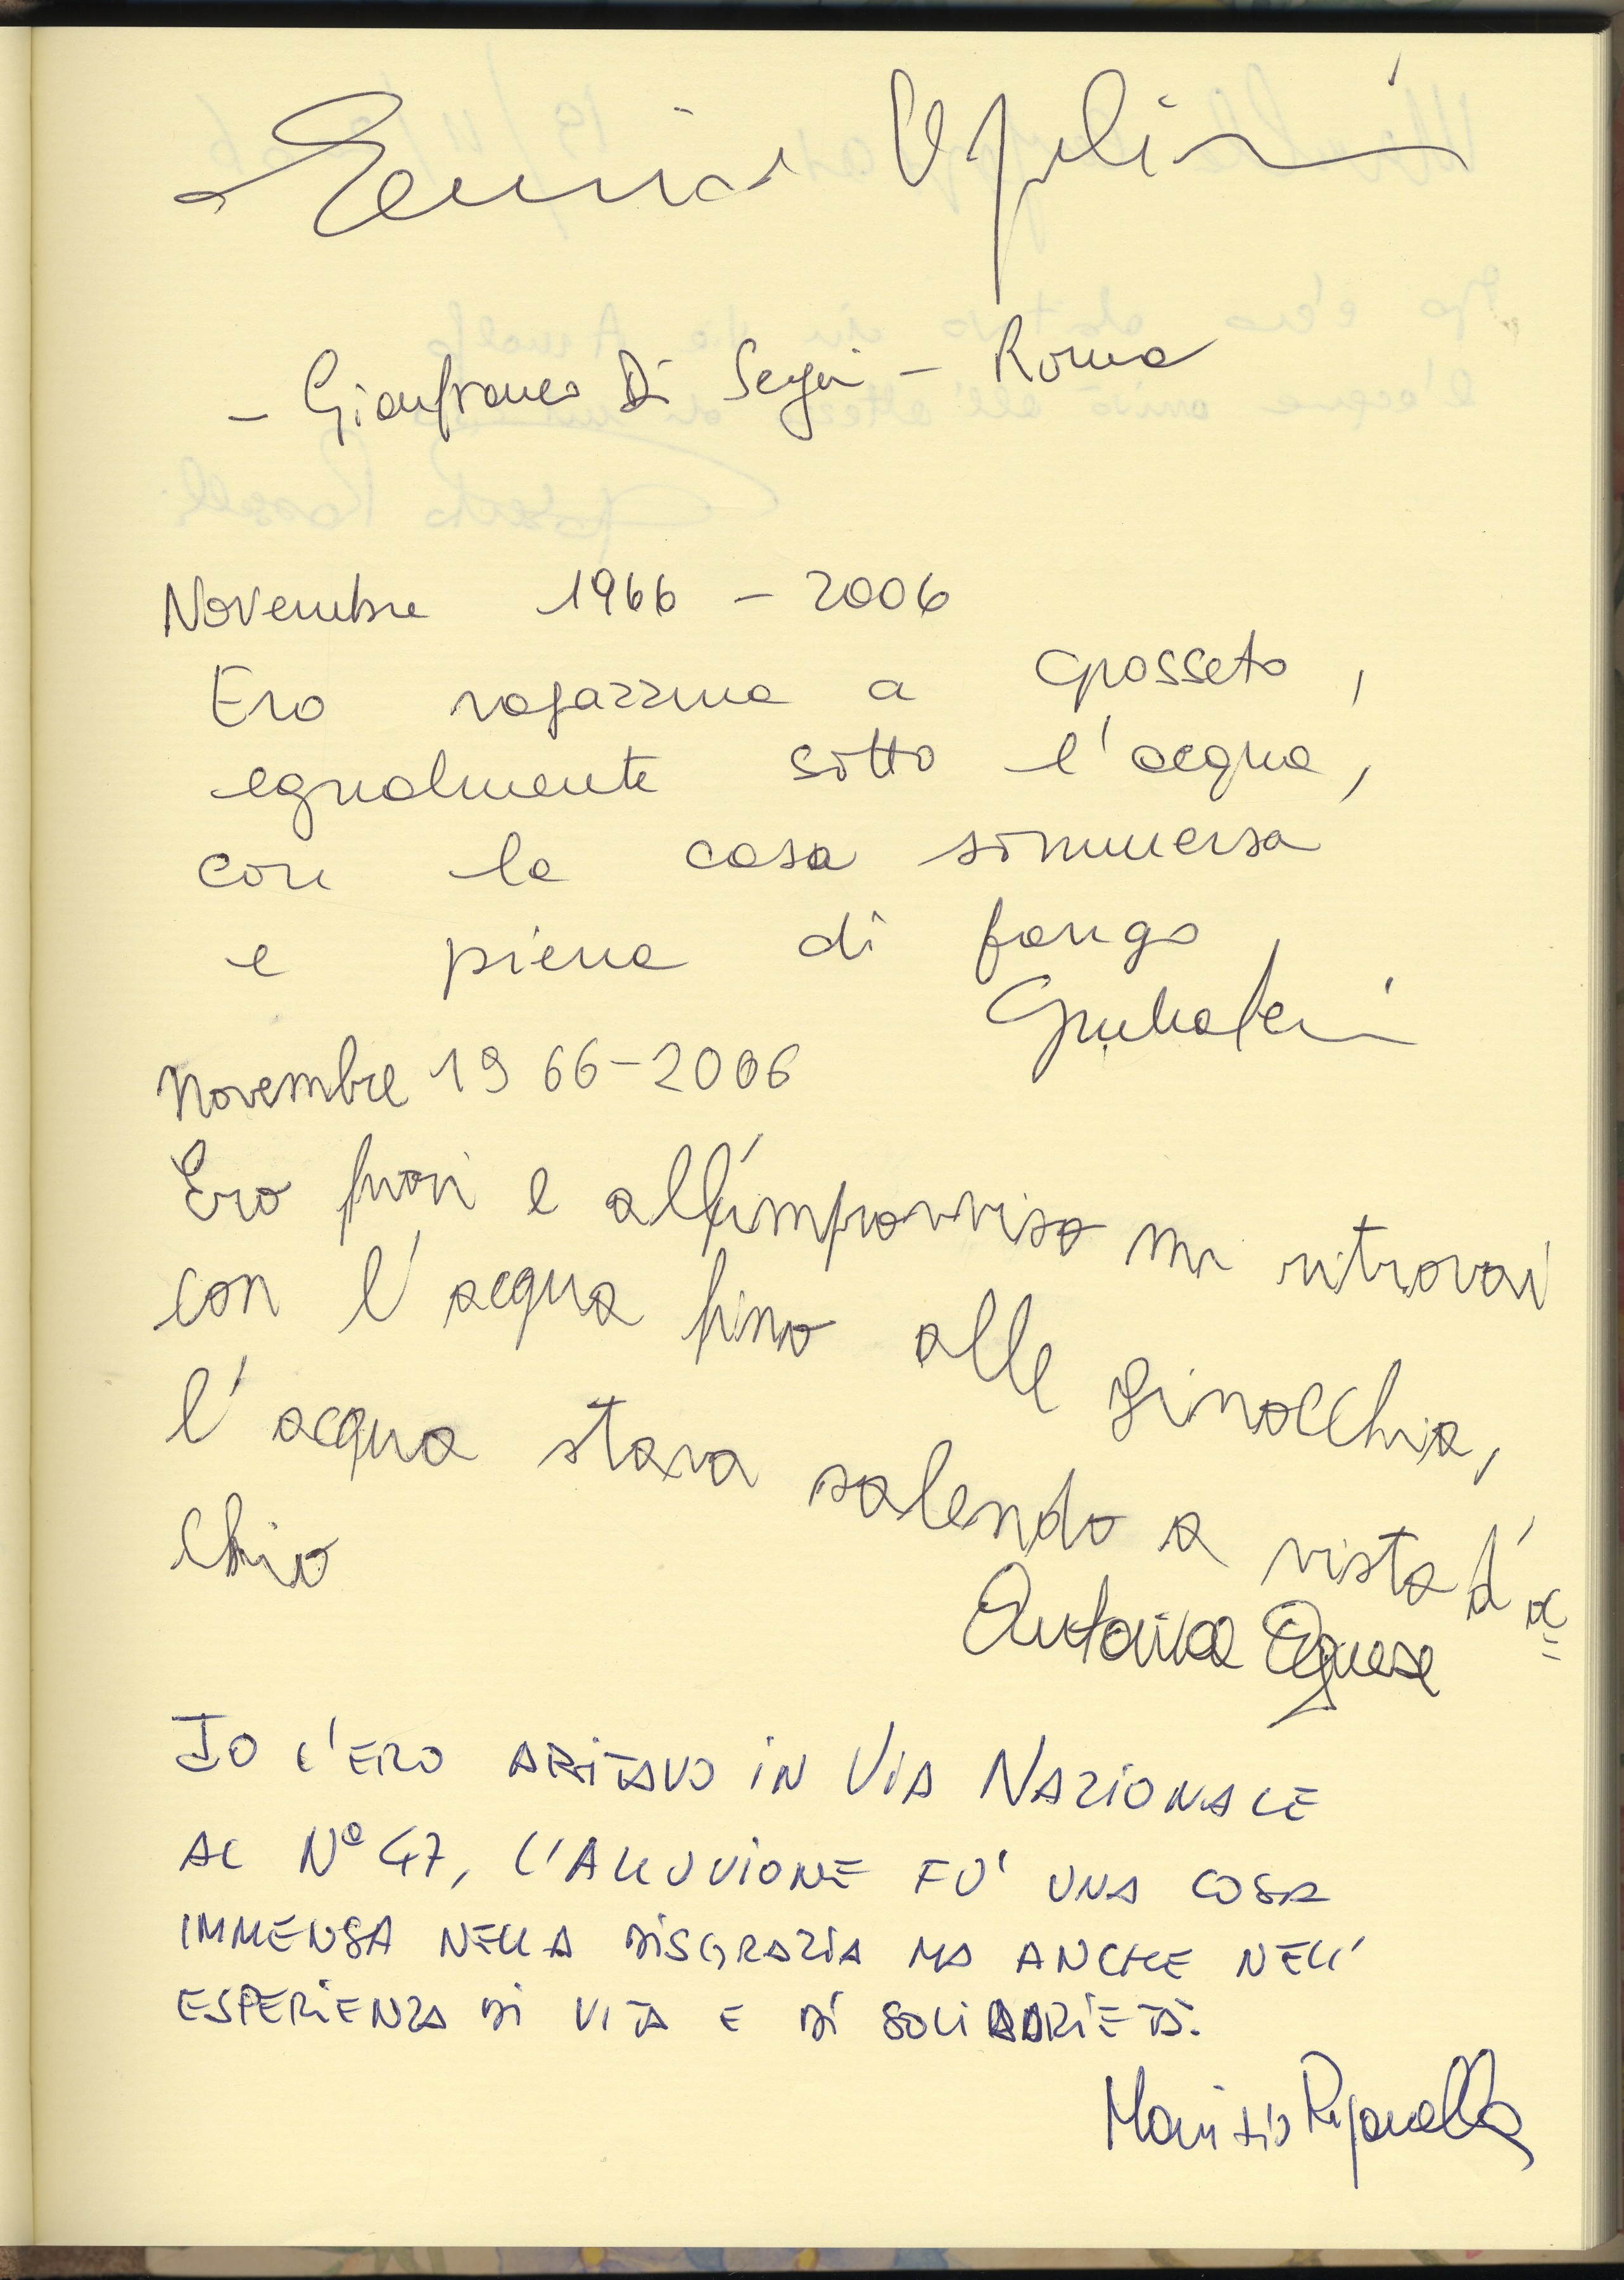 - Gianfranco Di Segni - Roma
Novembre 1966 - 2006
Ero ragazzina a Grosseto,
egualmente sotto l'acqua,
con la casa sommersa
e piena di fango
Novembre 1966-2006
Ero fuori e all'improvviso mi ritrovai
con l'acqua fino alle ginocchia,
l'acqua stava salendo a vista d'oc=
chio
Antonina Agnese
IO C'ERO ABITAVO IN VIA NAZIONALE
AL N° 47, L'ALLUVIONE FU' UNA COSA
IMMENSA NELLA DISGRAZIA MA ANCHE NELL'
ESPERIENZA DI VITA E DI SOLIDARIETÀ.
Maurizio